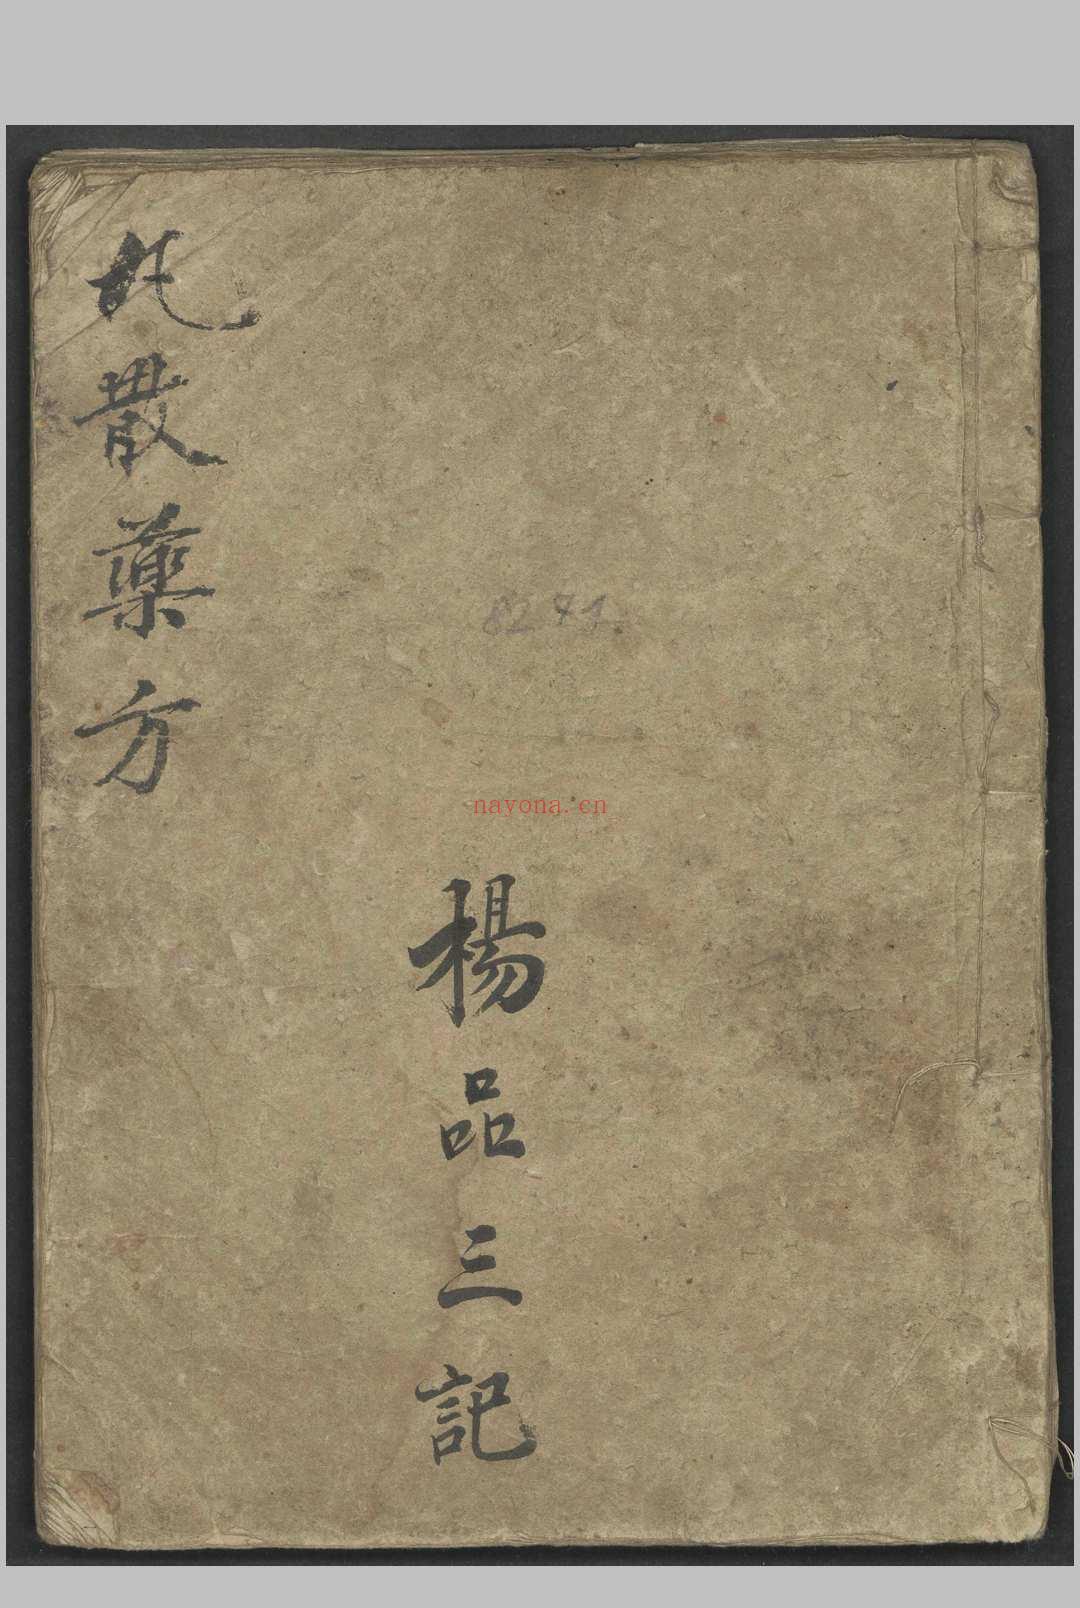 丸散藥方
8271
nayona.cn
楊品三記